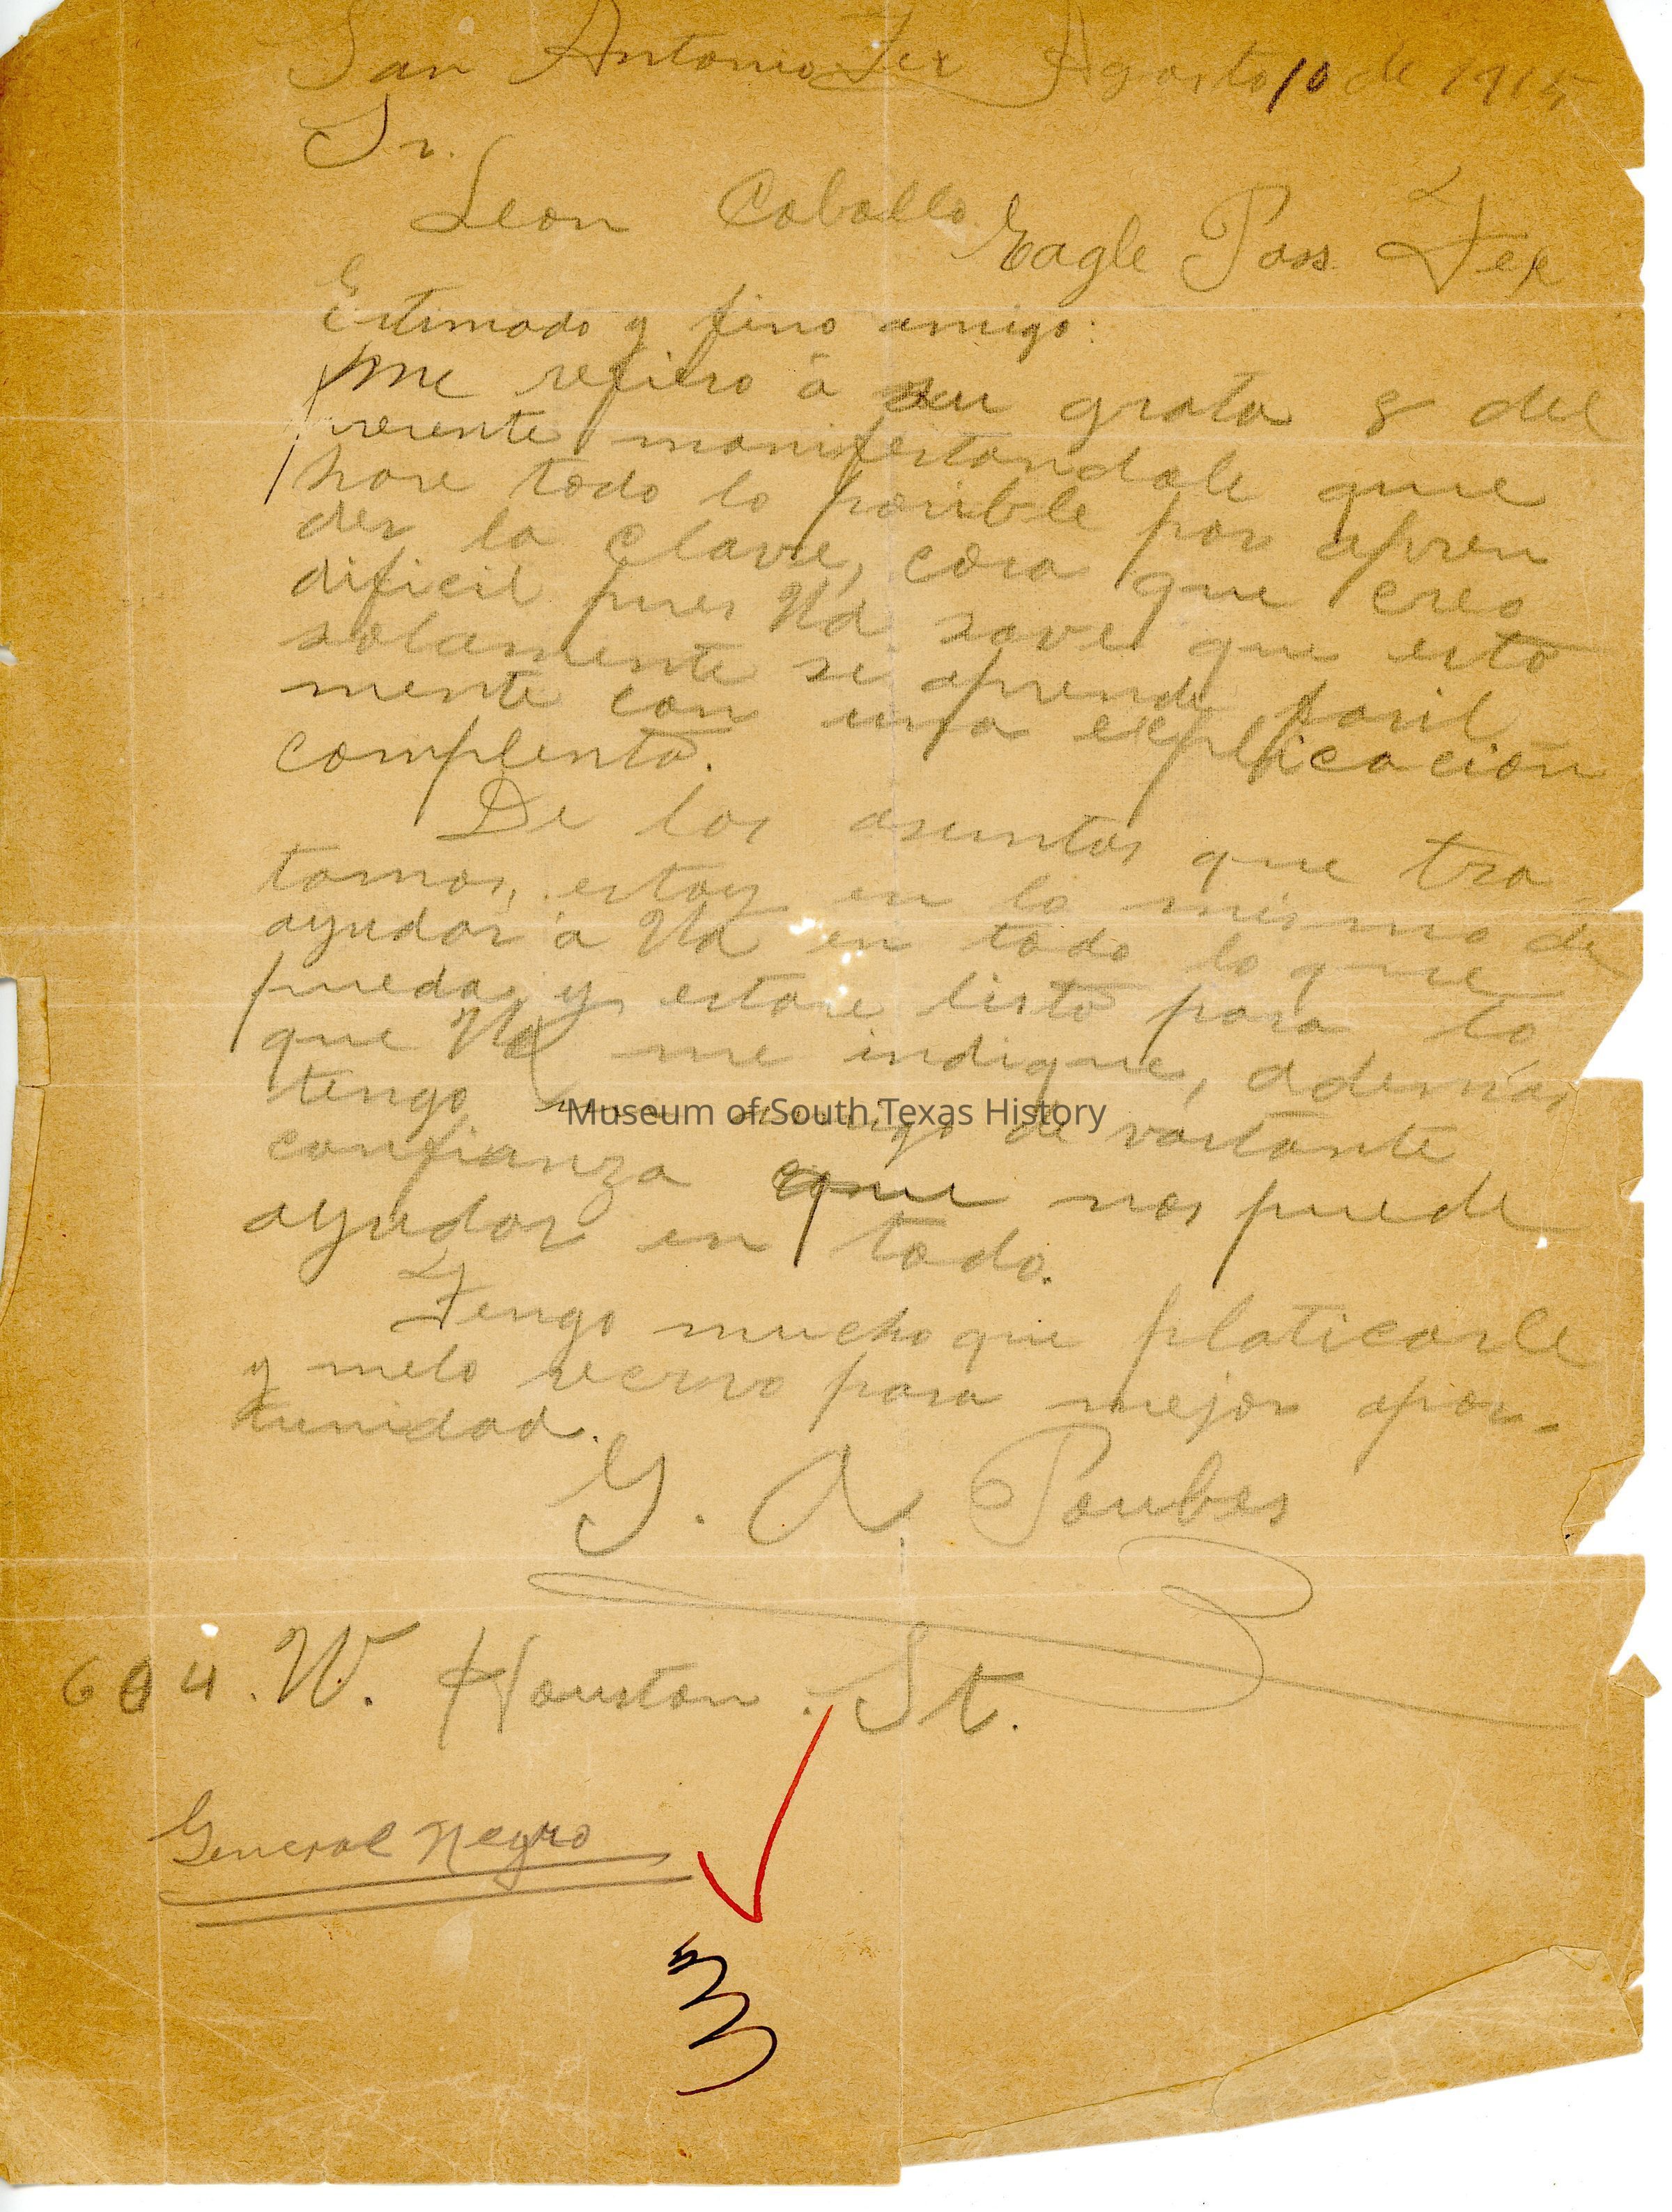 San Antonio Tex Agosto 10 de 1915
Sr.
Leon Caballo
Eagle Pass Tex
Estimado y fino amigo:
Me refiero á su grata 8 del
presente manifestandole que
hare todo lo posible por apren
der la clave, cosa que creo
dificil pues Ud save que esto
solamente se aprende facil
mente con una explicación
complenta.
De los asuntos que tra
tamos, estoy en lo mismo de
ayudar á Ud en todo lo que
pueda, y estare listo para lo
que Ud me indique, además
tengo un amigo de vastante
confianza que nos puede
ayudar en todo.
Tengo mucho que platicarle
y melo recervo para mejor opor-
tunidad.
G. A.
604. W. Houston. St.
General Negro
3
Museum of South Texas History